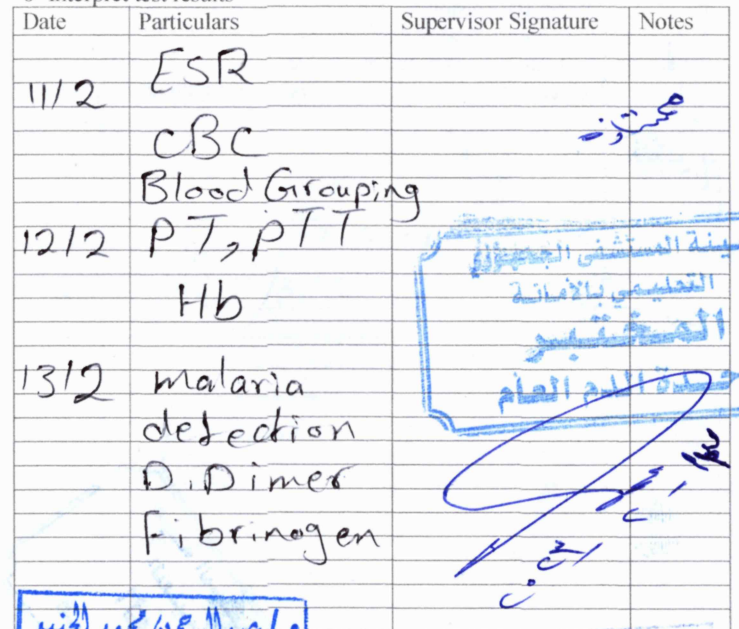 Date Particulars Supervisor Signature Notes
11/2 ESR
CBC
Blood Grouping
12/2 PT, PTT
Hb
13/2 malaria
detection
D.Dimer
Fibrinogen
ممتازه
المستشفى الجمهوري
التعليمي بالأمانة
المختبر
وحدة الدم العام